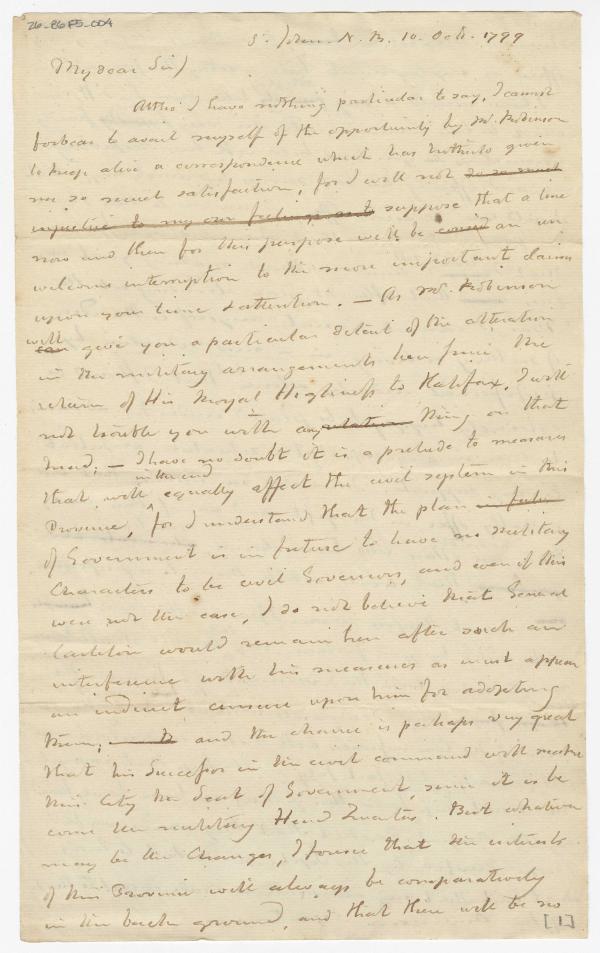 26-86F5-004
St. John. N. B. 10. Octr. 1799
My dear Sir/
Altho' I have nothing particular to say, I cannot
forbear to avail myself of the opportunity by Mr. Robinson
to keep alive a correspondence which has hitherto given
me so much satisfaction, for I will not so so much
injustice to my own feelings as to suppose that a line
now and then for this purpose will be an un
welcome interruption to the more important claims
upon your time & attention. — As Mr. Robinson
will
can give you a particular detail of the alteration
in the military arrangements here since the
return of His Royal Highness to Halifax, I will
not trouble you with any thing on that
head; — I have no doubt it is a prelude to measures
in the end
that will equally affect the civil system in this
Province, ^ for I understand that the plan in future
of Government is in future to have no military
Characters to be civil Governors, and even if this
were not the case, I do not believe that General
Carleton would remain here after such an
interference with his measures as must appear
an indirect censure upon him for adopting
them; and the chance is perhaps very great
that his Successor in the civil command will make
this City the Seat of Government, since it is be
come the military Head Quarters. But whatever
may be the Changes, I foresee that the interests
of this Province will always be comparatively
in the back ground, and that there will be no
[1]